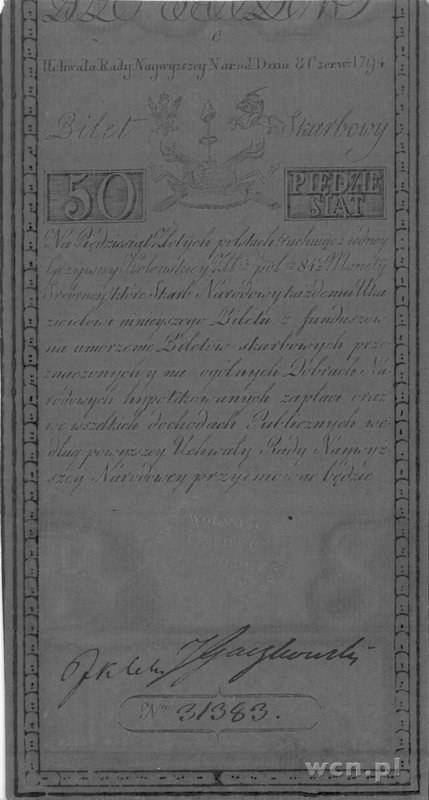 C
Uchwała Rady Naywyzszey Narod: Dnia 8 Czerw: 1794
Bilet Skarbowy
50 PIĘDZIE
SIĄT
Na Piędziesiąt Złotych polskich rachuiąc z iedney
Grzywny Kolońskiey Złł: pol: 84½ Monety
Srebrney, które Skarb Narodowy każdemu Uka
zicielowi ninieyszego Biletu z funduszow
na umorzenie Biletow skarbowych prze
znaczonych y na ogolnych Dobrach Na
rodowych hypotekowanych zapłaci oraz
we wszelkich dochodach Publicznych we
dług powyzszey Uchwały Rady Naywyz
szey Narodowey przyimować będzie
WOLNOSC
Nro 31383.
wcn.pl